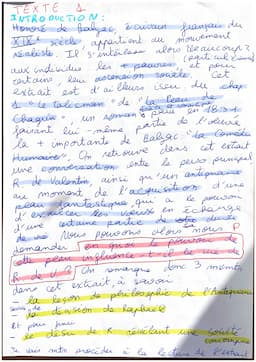 TEXTE 1
INTRODUCTION :
Honoré de Balzac, écrivain français du
XIXe siècle appartient du mouvement
réaliste. Il s'intéresse alors beaucoup
aux individus les + pauvres, et pour
certains leur ascension sociale. Cet
extrait est d'ailleurs issu du chap
1 "Le Talisman" de "La Peau de
Chagrin", un roman en 1831
faisant lui-même partie de l'œuvre
la + importante de Balzac "La Comédie
Humaine". On retrouve dans cet extrait
une conversation entre le perso principal
R. de Valentin, ainsi qu'un antiquaire
au moment de l'acquisition d'une
peau fantastique qui a le pouvoir
d'exaucer les vœux en échange
d'une certaine durée
de vie. Nous pouvons alors nous
demander en quoi le pouvoir de
cette peau influence-t-il la vie de
R de V ? On remarque donc 3 moments
dans cet extrait, à savoir
- la leçon de philosophie de l'Antiquaire
- la décision de Raphaël
Et pour finir
- le désir de R révélant une société
corrompue
Je vais mtn procéder à la lecture de l'extrait